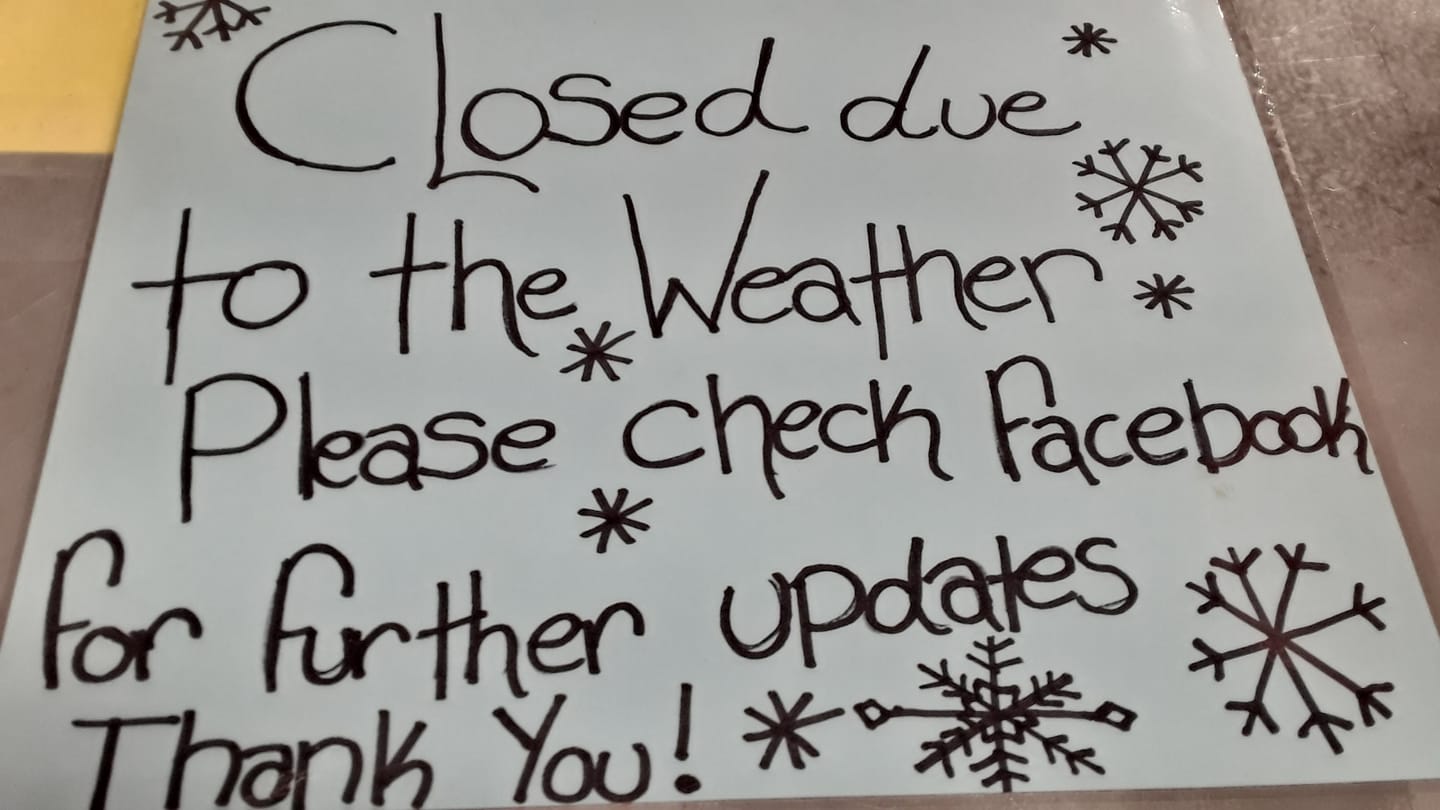 Closed due
to the Weather
Please check facebook
for further updates
Thank You!